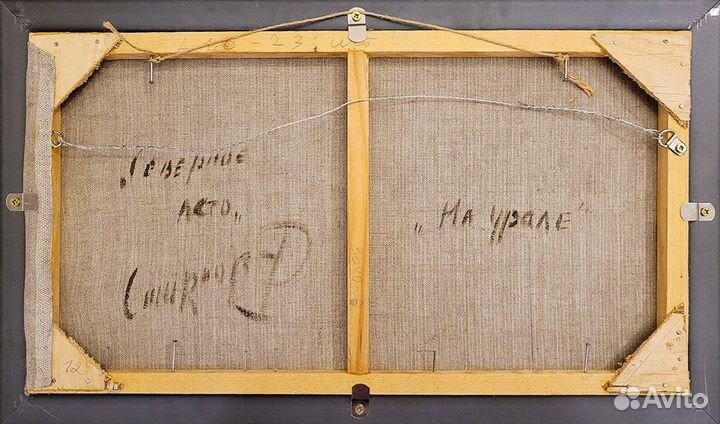 „Северное
лето„
Смирнов
„На Урале"
12
Avito